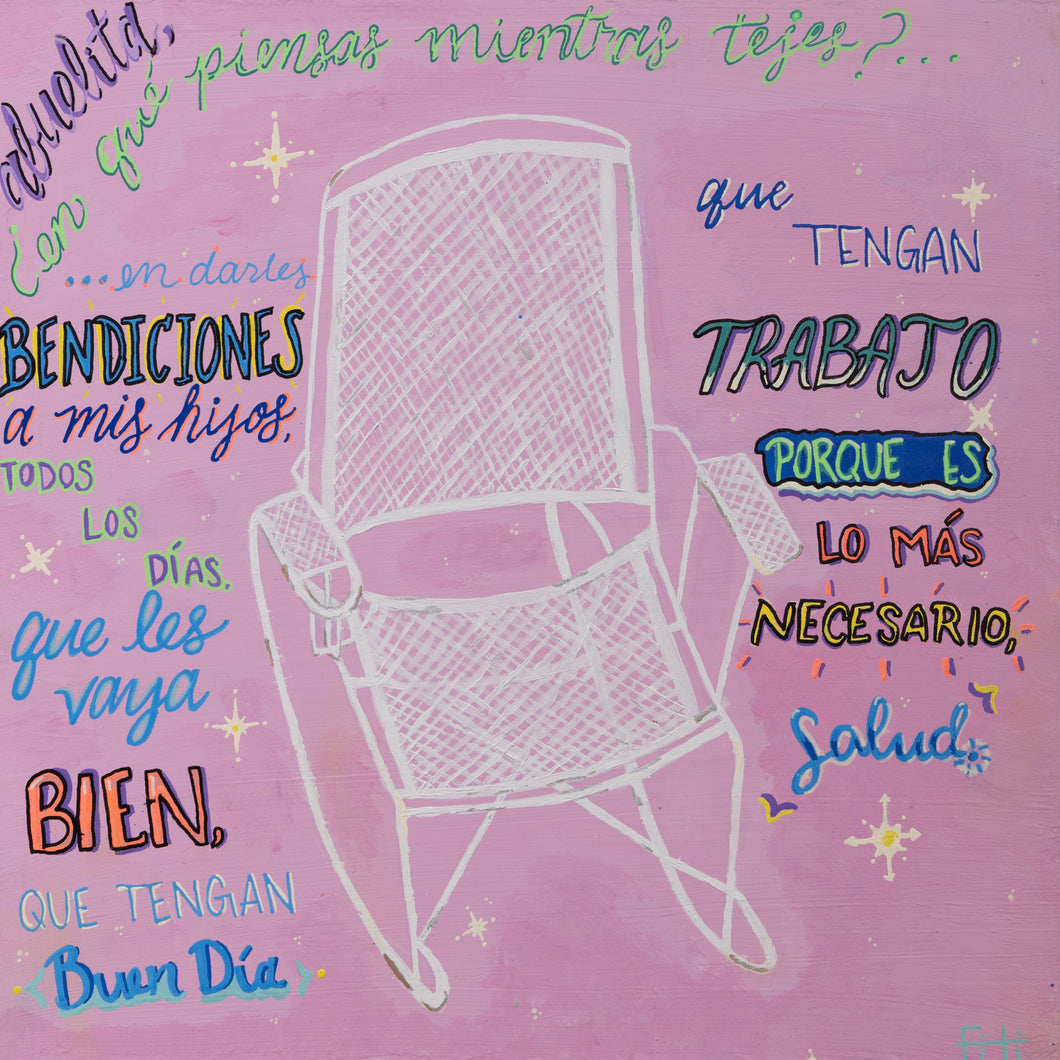 abuelita,
¿en qué piensas mientras tejes?...
...en darles
BENDICIONES
a mis hijos,
TODOS
LOS
DÍAS.
que les
vaya
BIEN,
QUE TENGAN
Buen Día
que
TENGAN
TRABAJO
PORQUE ES
LO MÁS
NECESARIO,
Salud.
Fiti